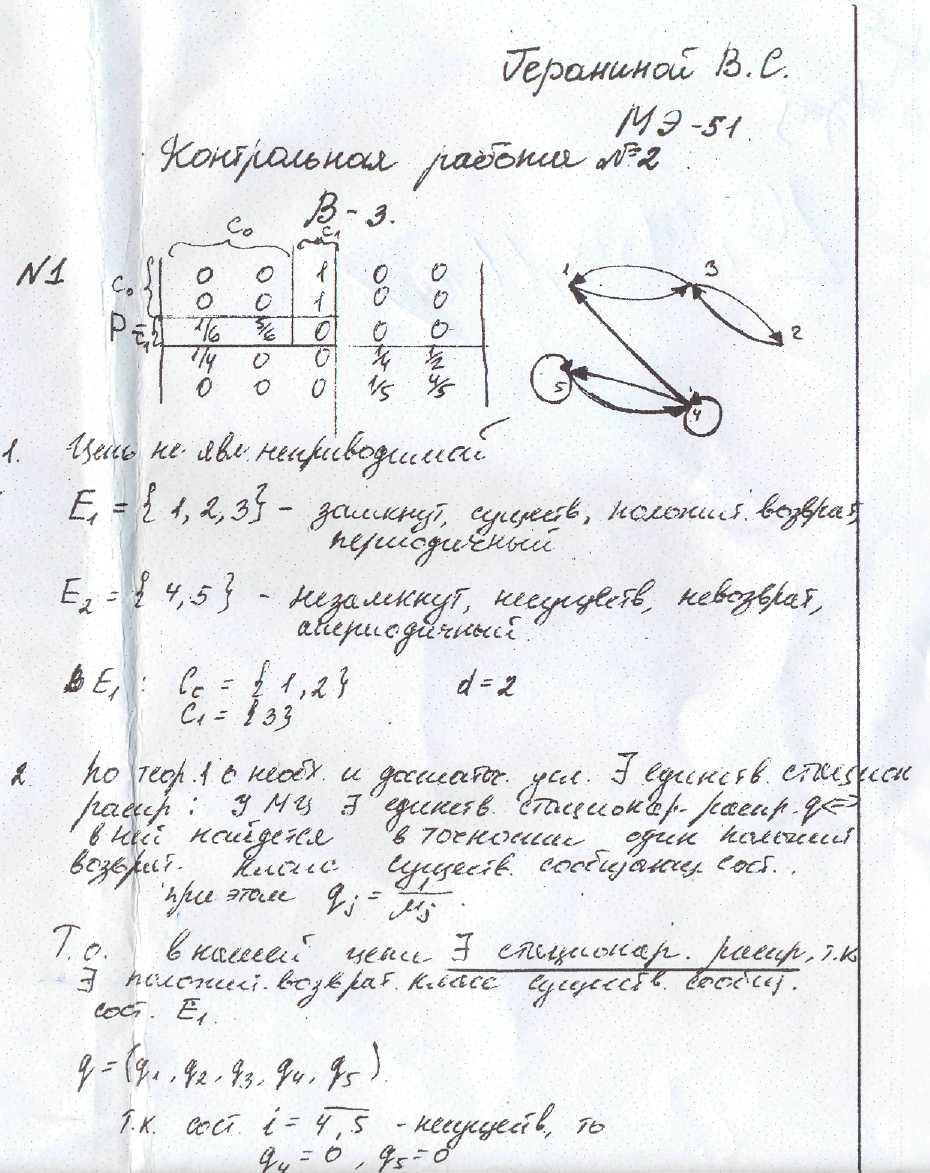 Гераниной В.С.
МЭ-51.
Контрольная работа №2
В-3.
C₀ C₁
№1
C₀ 0 0 1 0 0
0 0 1 0 0
P = E₁ 1/6 5/6 0 0 0
1/4 0 0 1/4 1/2
0 0 0 1/5 4/5
1 3
2
5
4
1. Цепь не явл. неприводимой
E₁ = {1, 2, 3} - замкнут, существ, положит. возврат,
периодичный
E₂ = {4, 5} - незамкнут, несуществ, невозврат,
апериодичный.
В E₁: C₀ = {1, 2} d = 2
C₁ = {3}
2. По теор. 1 о необх. и достаточ. усл. ∃ единств. стацион
распр: У МЦ ∃ единств. стационар. распр. q ⇔
в ней найдется в точности один положит
возврат. класс существ. сообщающ. сост..
при этом qⱼ = 1/μⱼ.
Т.о. в нашей цепи ∃ стационар. распр, т.к
∃ положит. возврат. класс существ. сообщ.
сост. E₁.
q = (q₁, q₂, q₃, q₄, q₅).
Т.к. сост. i = 4,5 - несуществ, то
q₄ = 0, q₅ = 0